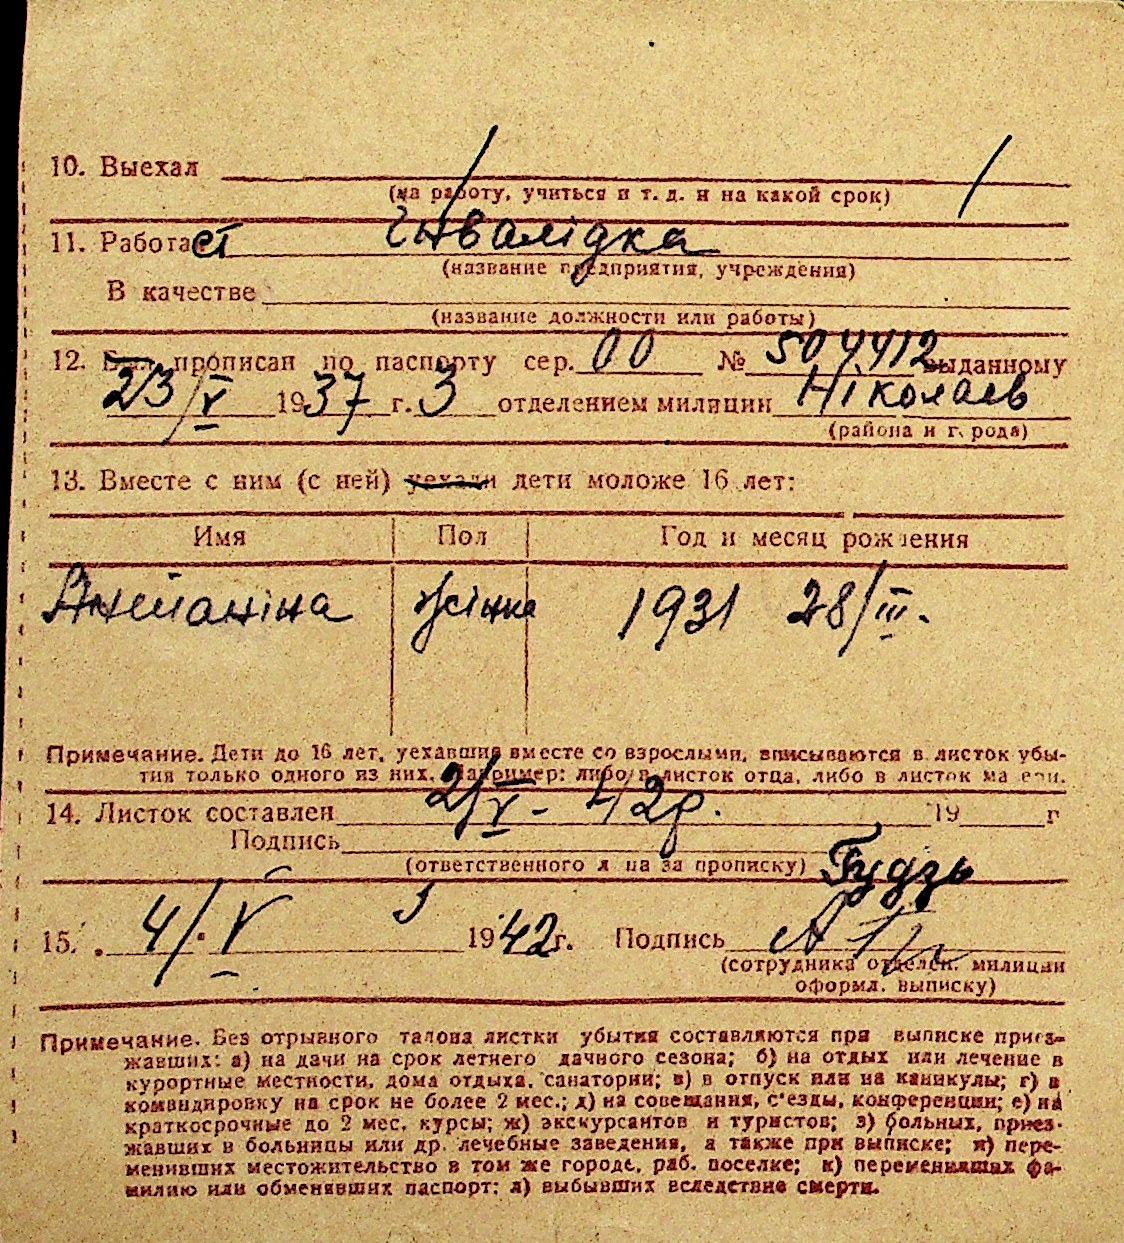 10. Выехал / /
(на работу, учиться и т. д. и на какой срок)
11. Работает інвалідка
(название предприятия, учреждения)
В качестве
(название должности или работы)
12. Был прописан по паспорту сер. 00 № 504412 выданному
23/V 1937 г. 3 отделением милиции Ніколаев
(района и города)
13. Вместе с ним (с ней) уехали дети моложе 16 лет:
Имя Пол Год и месяц рождения
Антаніна жінка 1931 28/III.
Примечание. Дети до 16 лет, уехавшия вместе со взрослыми, вписываются в листок убы-
тия только одного из них. Например: либо в листок отца, либо в листок матери.
14. Листок составлен 2/V - 42р. 19 г
Подпись
(ответственного лица за прописку) Гудзь
15. 4/V 1942г. Подпись
(сотрудника отделен. милиции
оформл. выписку)
Примечание. Без отрывного талона листки убытия составляются при выписке приез-
жавших: а) на дачи на срок летнего дачного сезона; б) на отдых или лечение в
курортные местности, дома отдыха, санатории; в) в отпуск или на каникулы; г) в
командировку на срок не более 2 мес.; д) на совещания, с'езды, конференции; е) на
краткосрочные до 2 мес. курсы; ж) экскурсантов и туристов; з) больных, приез-
жавших в больницы или др. лечебные заведения, а также при выписке; и) пере-
менивших местожительство в том же городе, раб. поселке; к) переменивших фа-
милию или обменявших паспорт; л) выбывших вследствие смерти.